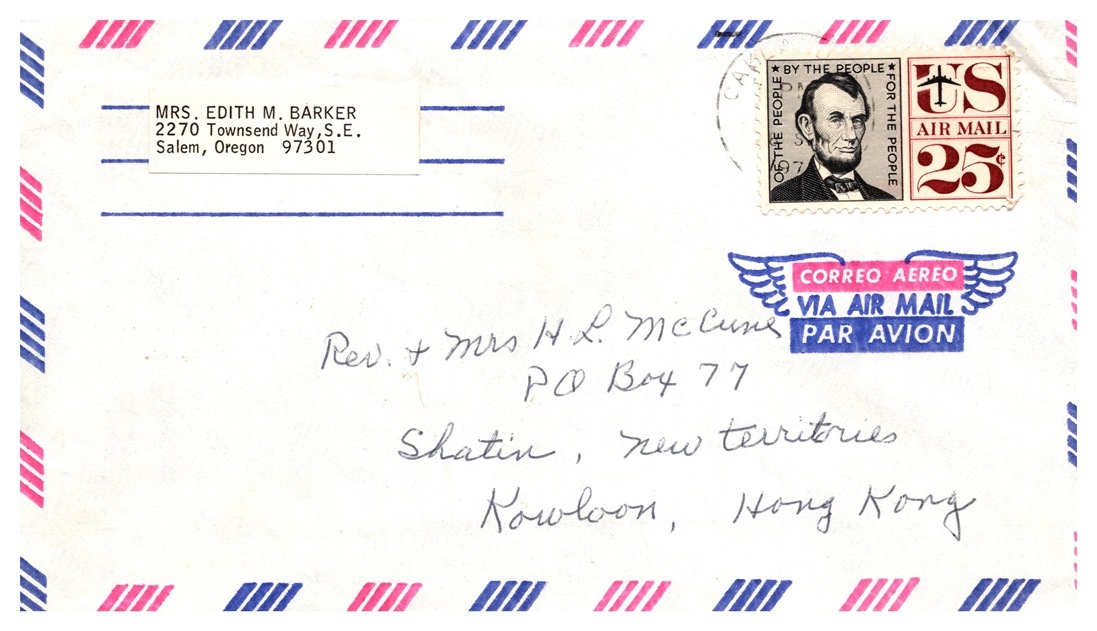 MRS. EDITH M. BARKER
2270 Townsend Way, S.E.
Salem, Oregon 97301
OF THE PEOPLE ★ BY THE PEOPLE ★ FOR THE PEOPLE
US
AIR MAIL
25¢
CORREO AEREO
VIA AIR MAIL
PAR AVION
Rev. + Mrs H. L. McCune
PO Box 77
Shatin, New Territories
Kowloon, Hong Kong